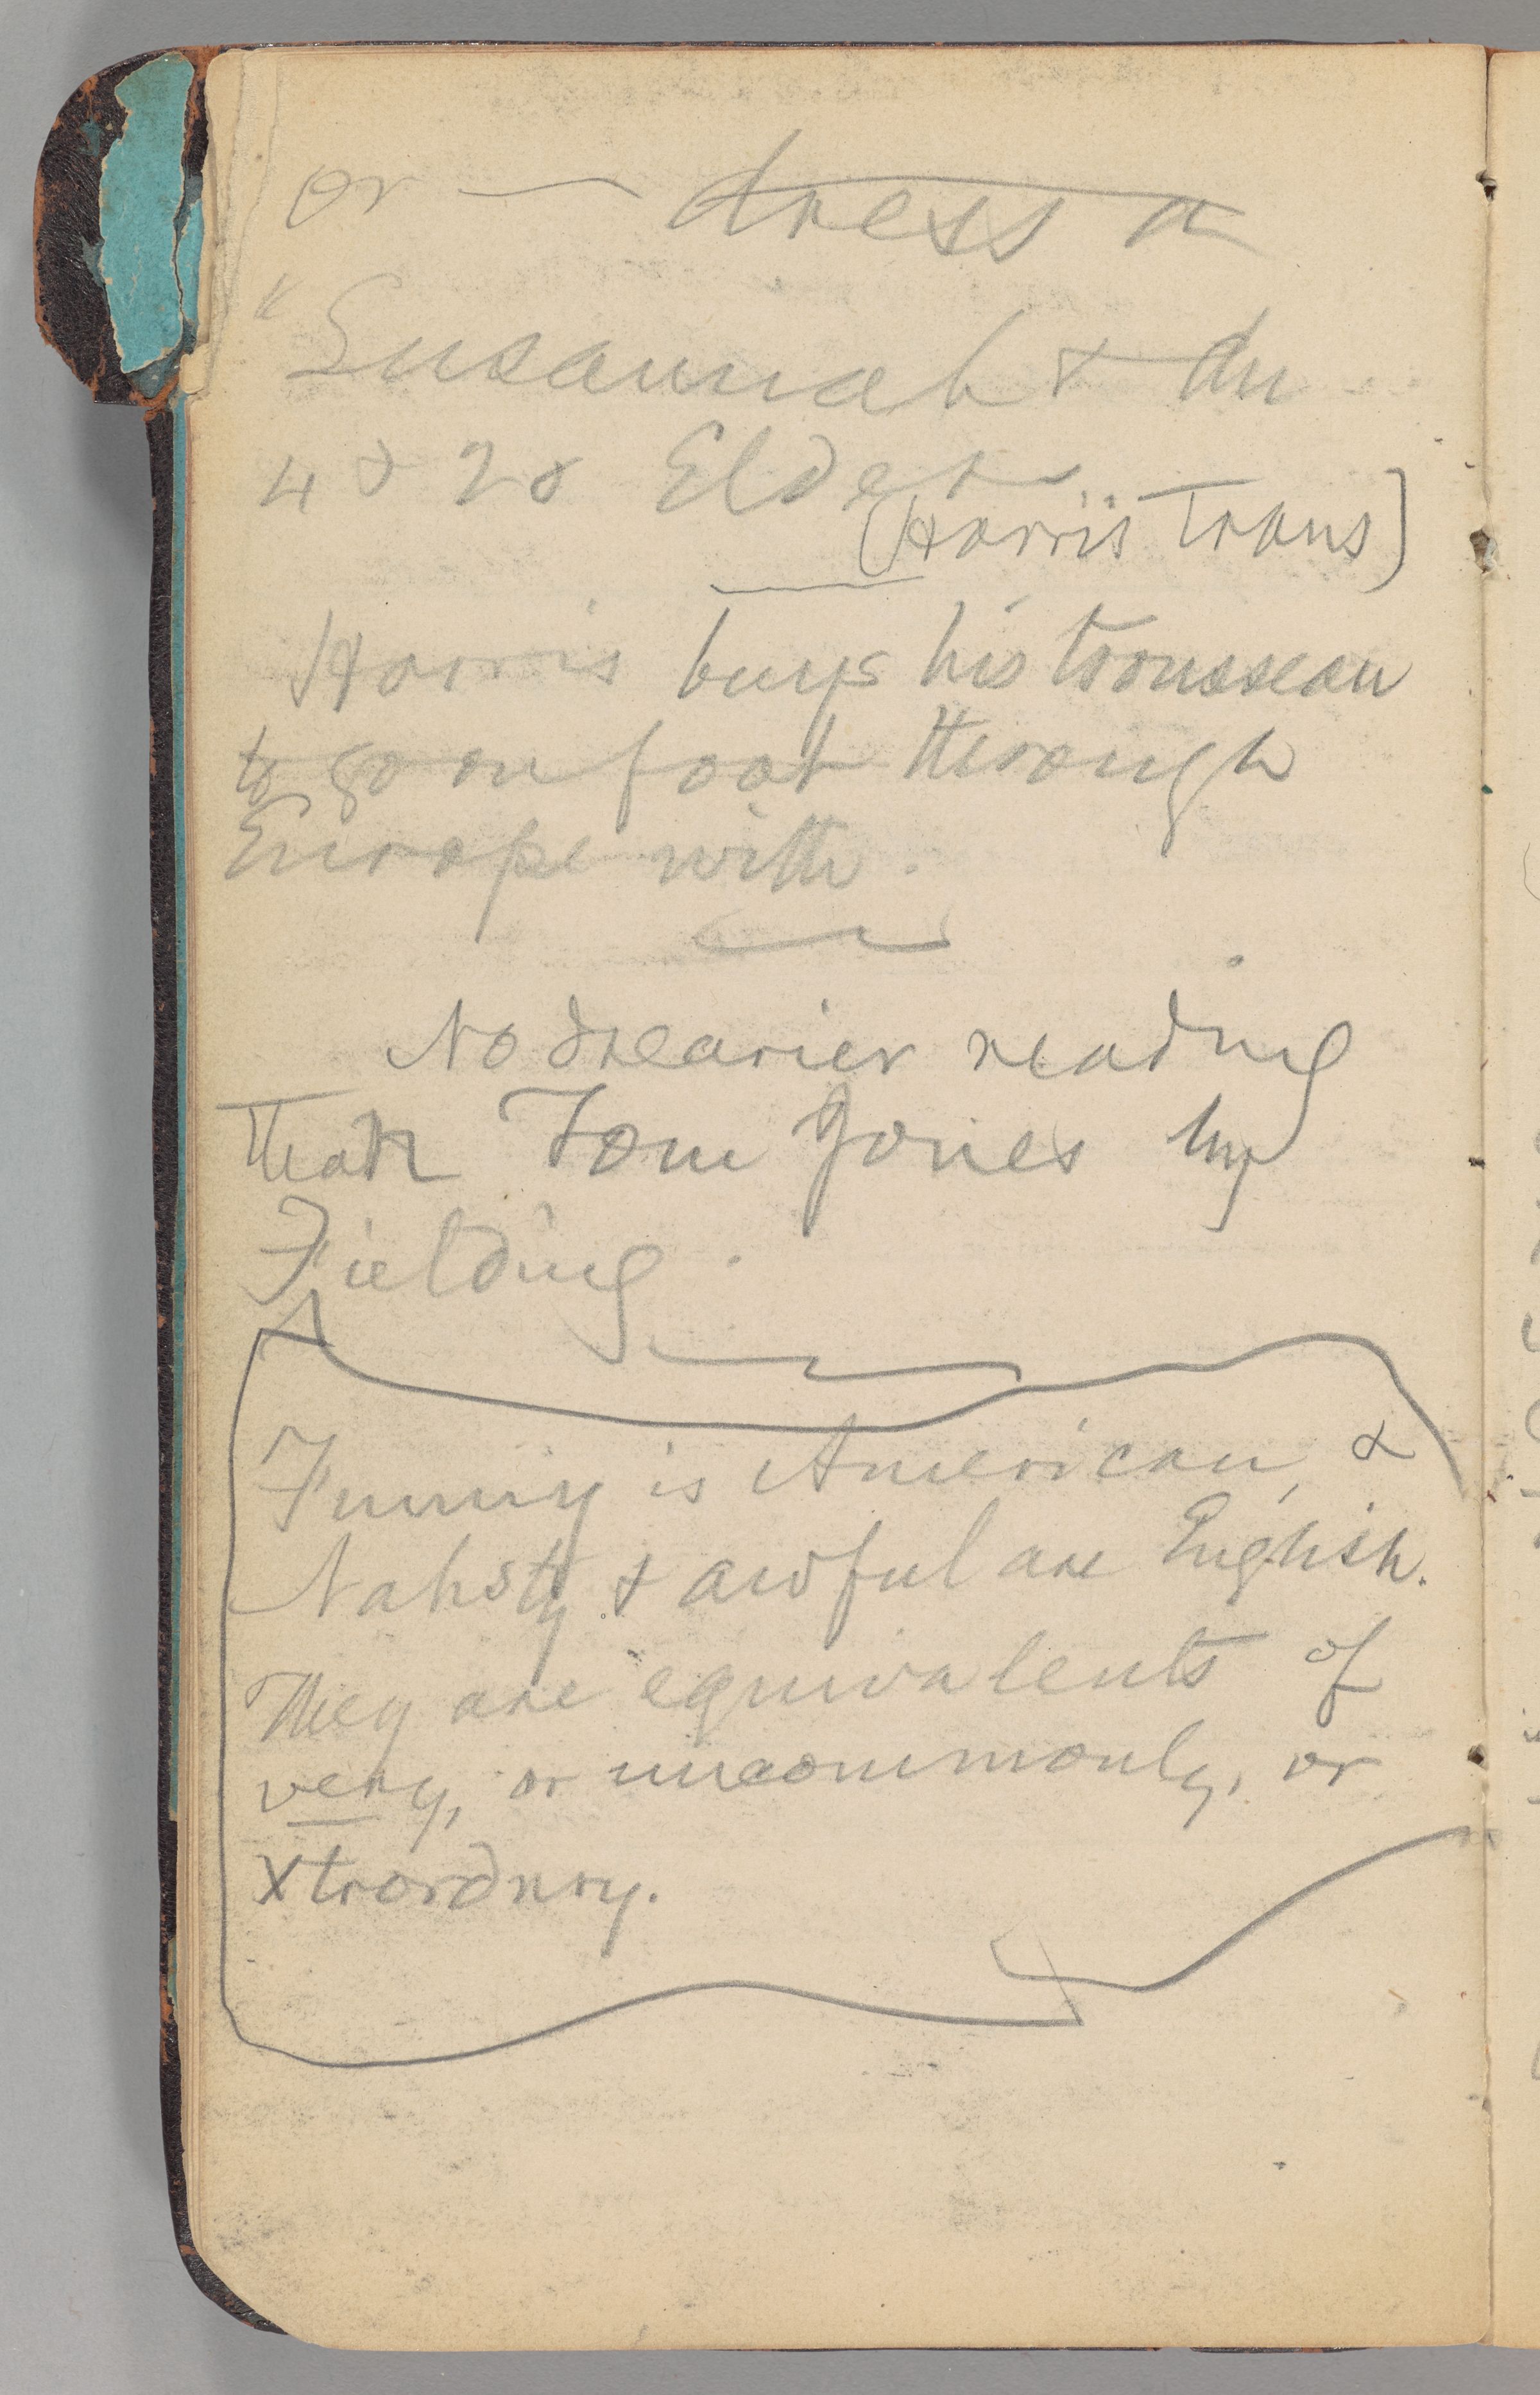 or — dress a
"Susannah & du
4 & 20 Elders
(Harris Trans)
Harris buys his trousseau
to go on foot through
Europe with.
No drearier reading
than Tom Jones by
Fielding.
Funny is American, &
Nahsty & awful are English.
They are equivalents of
very, or uncommonly, or
Xtrordnry.